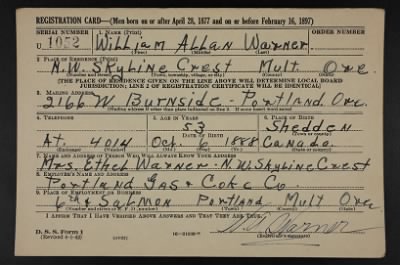 REGISTRATION CARD—(Men born on or after April 28, 1877 and on or before February 16, 1897)
SERIAL NUMBER 1. NAME (Print) ORDER NUMBER
U 1052 William Allan Warner
2. PLACE OF RESIDENCE (Print)
N.W. Skyline Crest Mult. Ore.
(Number and street) (Town, township, village, or city) (County) (State)
[THE PLACE OF RESIDENCE GIVEN ON THE LINE ABOVE WILL DETERMINE LOCAL BOARD
JURISDICTION; LINE 2 OF REGISTRATION CERTIFICATE WILL BE IDENTICAL]
3. MAILING ADDRESS
2166 W. Burnside - Portland. Ore.
[Mailing address if other than place indicated on line 2. If same insert word same]
4. TELEPHONE 5. AGE IN YEARS 6. PLACE OF BIRTH
53 Shedden
DATE OF BIRTH
At. 4014 Oct. 6 1888 Canada
(Exchange) (Number) (Mo.) (Day) (Yr.) (State or country)
7. NAME AND ADDRESS OF PERSON WHO WILL ALWAYS KNOW YOUR ADDRESS
Mrs. Ethel Warner - N.W. Skyline Crest
8. EMPLOYER'S NAME AND ADDRESS
Portland Gas & Coke Co.
9. PLACE OF EMPLOYMENT OR BUSINESS
6th & Salmon Portland Mult Ore
(Number and street or R. F. D. number) (Town) (County) (State)
I AFFIRM THAT I HAVE VERIFIED ABOVE ANSWERS AND THAT THEY ARE TRUE.
D. S. S. Form 1
(Revised 4-1-42) Warner